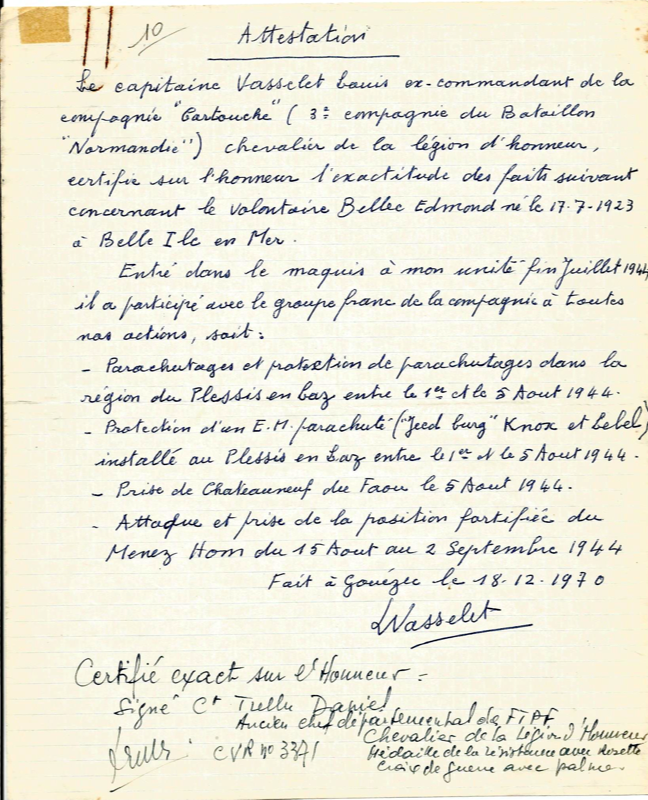 10
Attestation
Le capitaine Vasselet Louis ex-commandant de la
compagnie "Cartouche" ( 3e compagnie du Bataillon
"Normandie") chevalier de la légion d'honneur,
certifie sur l'honneur l'exactitude des faits suivant
concernant le volontaire Bellec Edmond né le 17.7-1923
à Belle Ile en Mer.
Entré dans le maquis à mon unité fin Juillet 1944
il a participé avec le groupe franc de la compagnie à toutes
nos actions, soit :
- Parachutages et protection de parachutages dans la
région du Plessis en Laz entre le 1er et le 5 Aout 1944.
- Protection d'un E.M. parachuté ("Jeed burg" Knox et Lebel)
installé au Plessis en Laz entre le 1er et le 5 Aout 1944.
- Prise de Chateauneuf du Faou le 5 Aout 1944.
- Attaque et prise de la position fortifiée du
Menez Hom du 15 Aout au 2 Septembre 1944
Fait à Gouézec le 18.12.1970
LVasselet
Certifié exact sur l'Honneur =
Signé Ct Trellu Daniel
Ancien chef départemental des FTPF
Chevalier de la Légion d'Honneur
Médaille de la résistance avec Rosette
Croix de guerre avec palmes
CVR no 3371